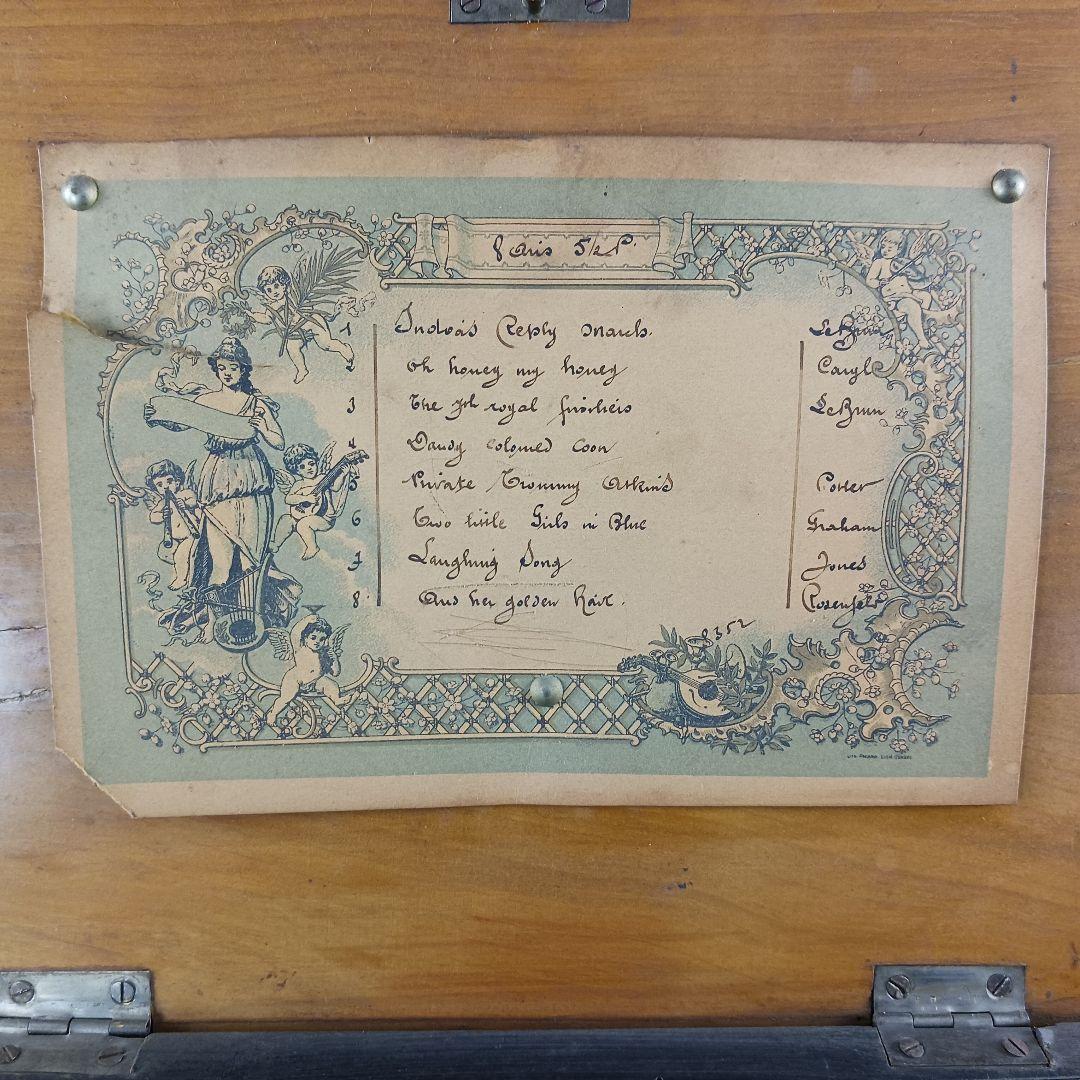 8 Airs
1 India's Reply march. LeBrun
oh honey my honey Caryll
3 The 7th royal fusiliers LeBrun
4 Dandy coloured Coon
5 Private Tommy Atkins Potter
6 Two little Girls in Blue Graham
7 Laughing Song Jones
8 And her golden hair. Rosenfeld
8352